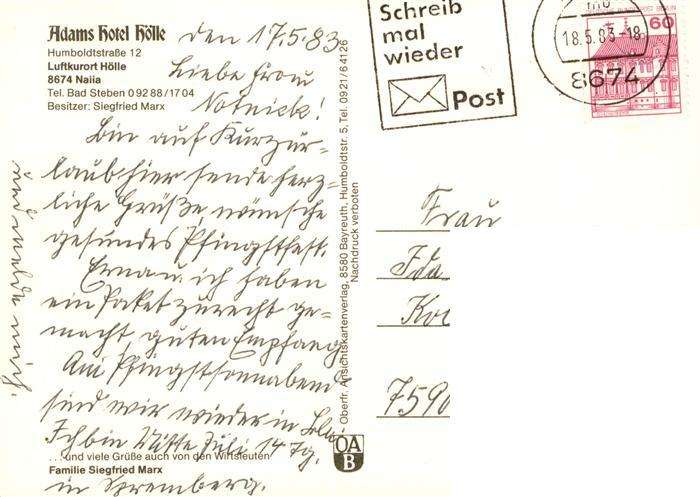 Adams Hotel Hölle
Humboldtstraße 12
Luftkurort Hölle
8674 Naila
Tel. Bad Steben 0 92 88 / 17 04
Besitzer: Siegfried Marx
den 17.5.83
Liebe Frau
Notnick!
Bin auf Kurzur-
laub hier sende herz-
liche Grüße, wünsche
gesundes Pfingstfest.
Erna u. ich haben
ein Paket zurecht ge-
macht, guten Empfang
Am Pfingstsonnabend
sind wir wieder in
Ich bin Mitte Juli 14 Tg.
in Spremberg.
und melde mich.
... und viele Grüße auch von den Wirtsleuten
Familie Siegfried Marx
Oberfr. Ansichtskartenverlag, 8580 Bayreuth, Humboldtstr. 5, Tel. 09 21 / 6 41 26
Nachdruck verboten
OA
B
Schreib
mal
wieder
Post
DEUTSCHE BUNDESPOST BERLIN
60
18.5.83-18
8674
Frau
Ida
7590